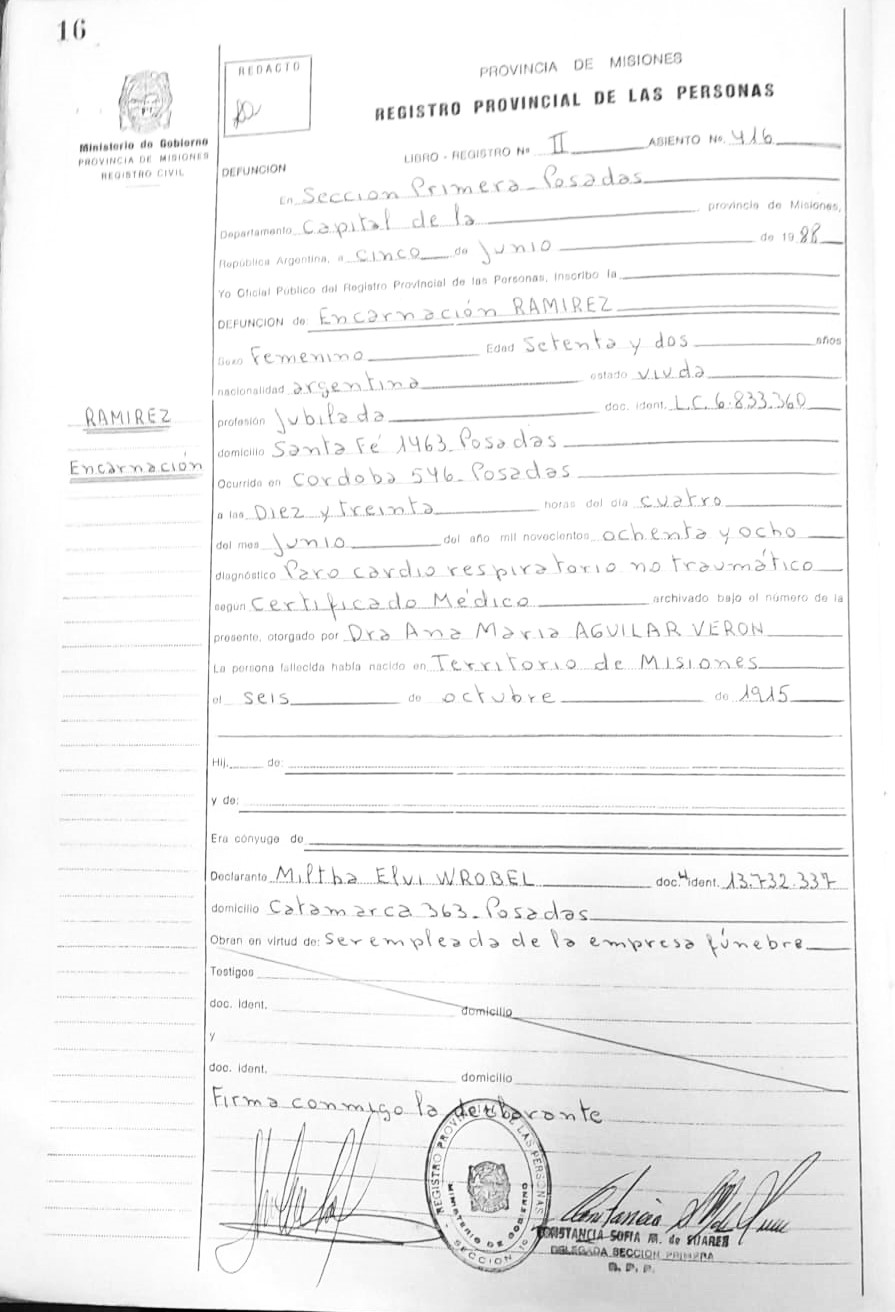 16
REDACTO
Ministerio de Gobierno
PROVINCIA DE MISIONES
REGISTRO CIVIL
PROVINCIA DE MISIONES
REGISTRO PROVINCIAL DE LAS PERSONAS
LIBRO - REGISTRO Nº II ASIENTO Nº. 416
DEFUNCION
En Seccion Primera - Posadas
Departamento Capital de la provincia de Misiones,
República Argentina, a cinco de junio de 1988
Yo Oficial Público del Registro Provincial de las Personas, inscribo la
DEFUNCION de: Encarnación RAMIREZ
Sexo Femenino Edad Setenta y dos años
nacionalidad argentina estado viuda
RAMIREZ
Encarnación
profesión Jubilada doc. ident. L.C. 6.833.360
domicilio Santa Fé 1463. Posadas
Ocurrida en Cordoba 546- Posadas
a las Diez y treinta horas del día cuatro
del mes Junio del año mil novecientos ochenta y ocho
diagnóstico Paro cardio respiratorio no traumático
según Certificado Médico archivado bajo el número de la
presente, otorgado por Dra Ana Maria AGUILAR VERON
La persona fallecida había nacido en Territorio de Misiones
el seis de octubre de 1915
Hij. de:
y de:
Era cónyuge de
Declarante Miltha Elvi WROBEL doc. ident. 13.732.337
domicilio Catamarca 363- Posadas
Obran en virtud de: Ser empleada de la empresa fúnebre
Testigos
doc. ident. domicilio
y
doc. ident. domicilio
Firma conmigo la declarante
REGISTRO PROVINCIAL DE LAS PERSONAS
MINISTERIO DE GOBIERNO
SECCION 1º
CONSTANCIA SOFIA M. de SUARES
DELEGADA SECCION PRIMERA
R. P. P.